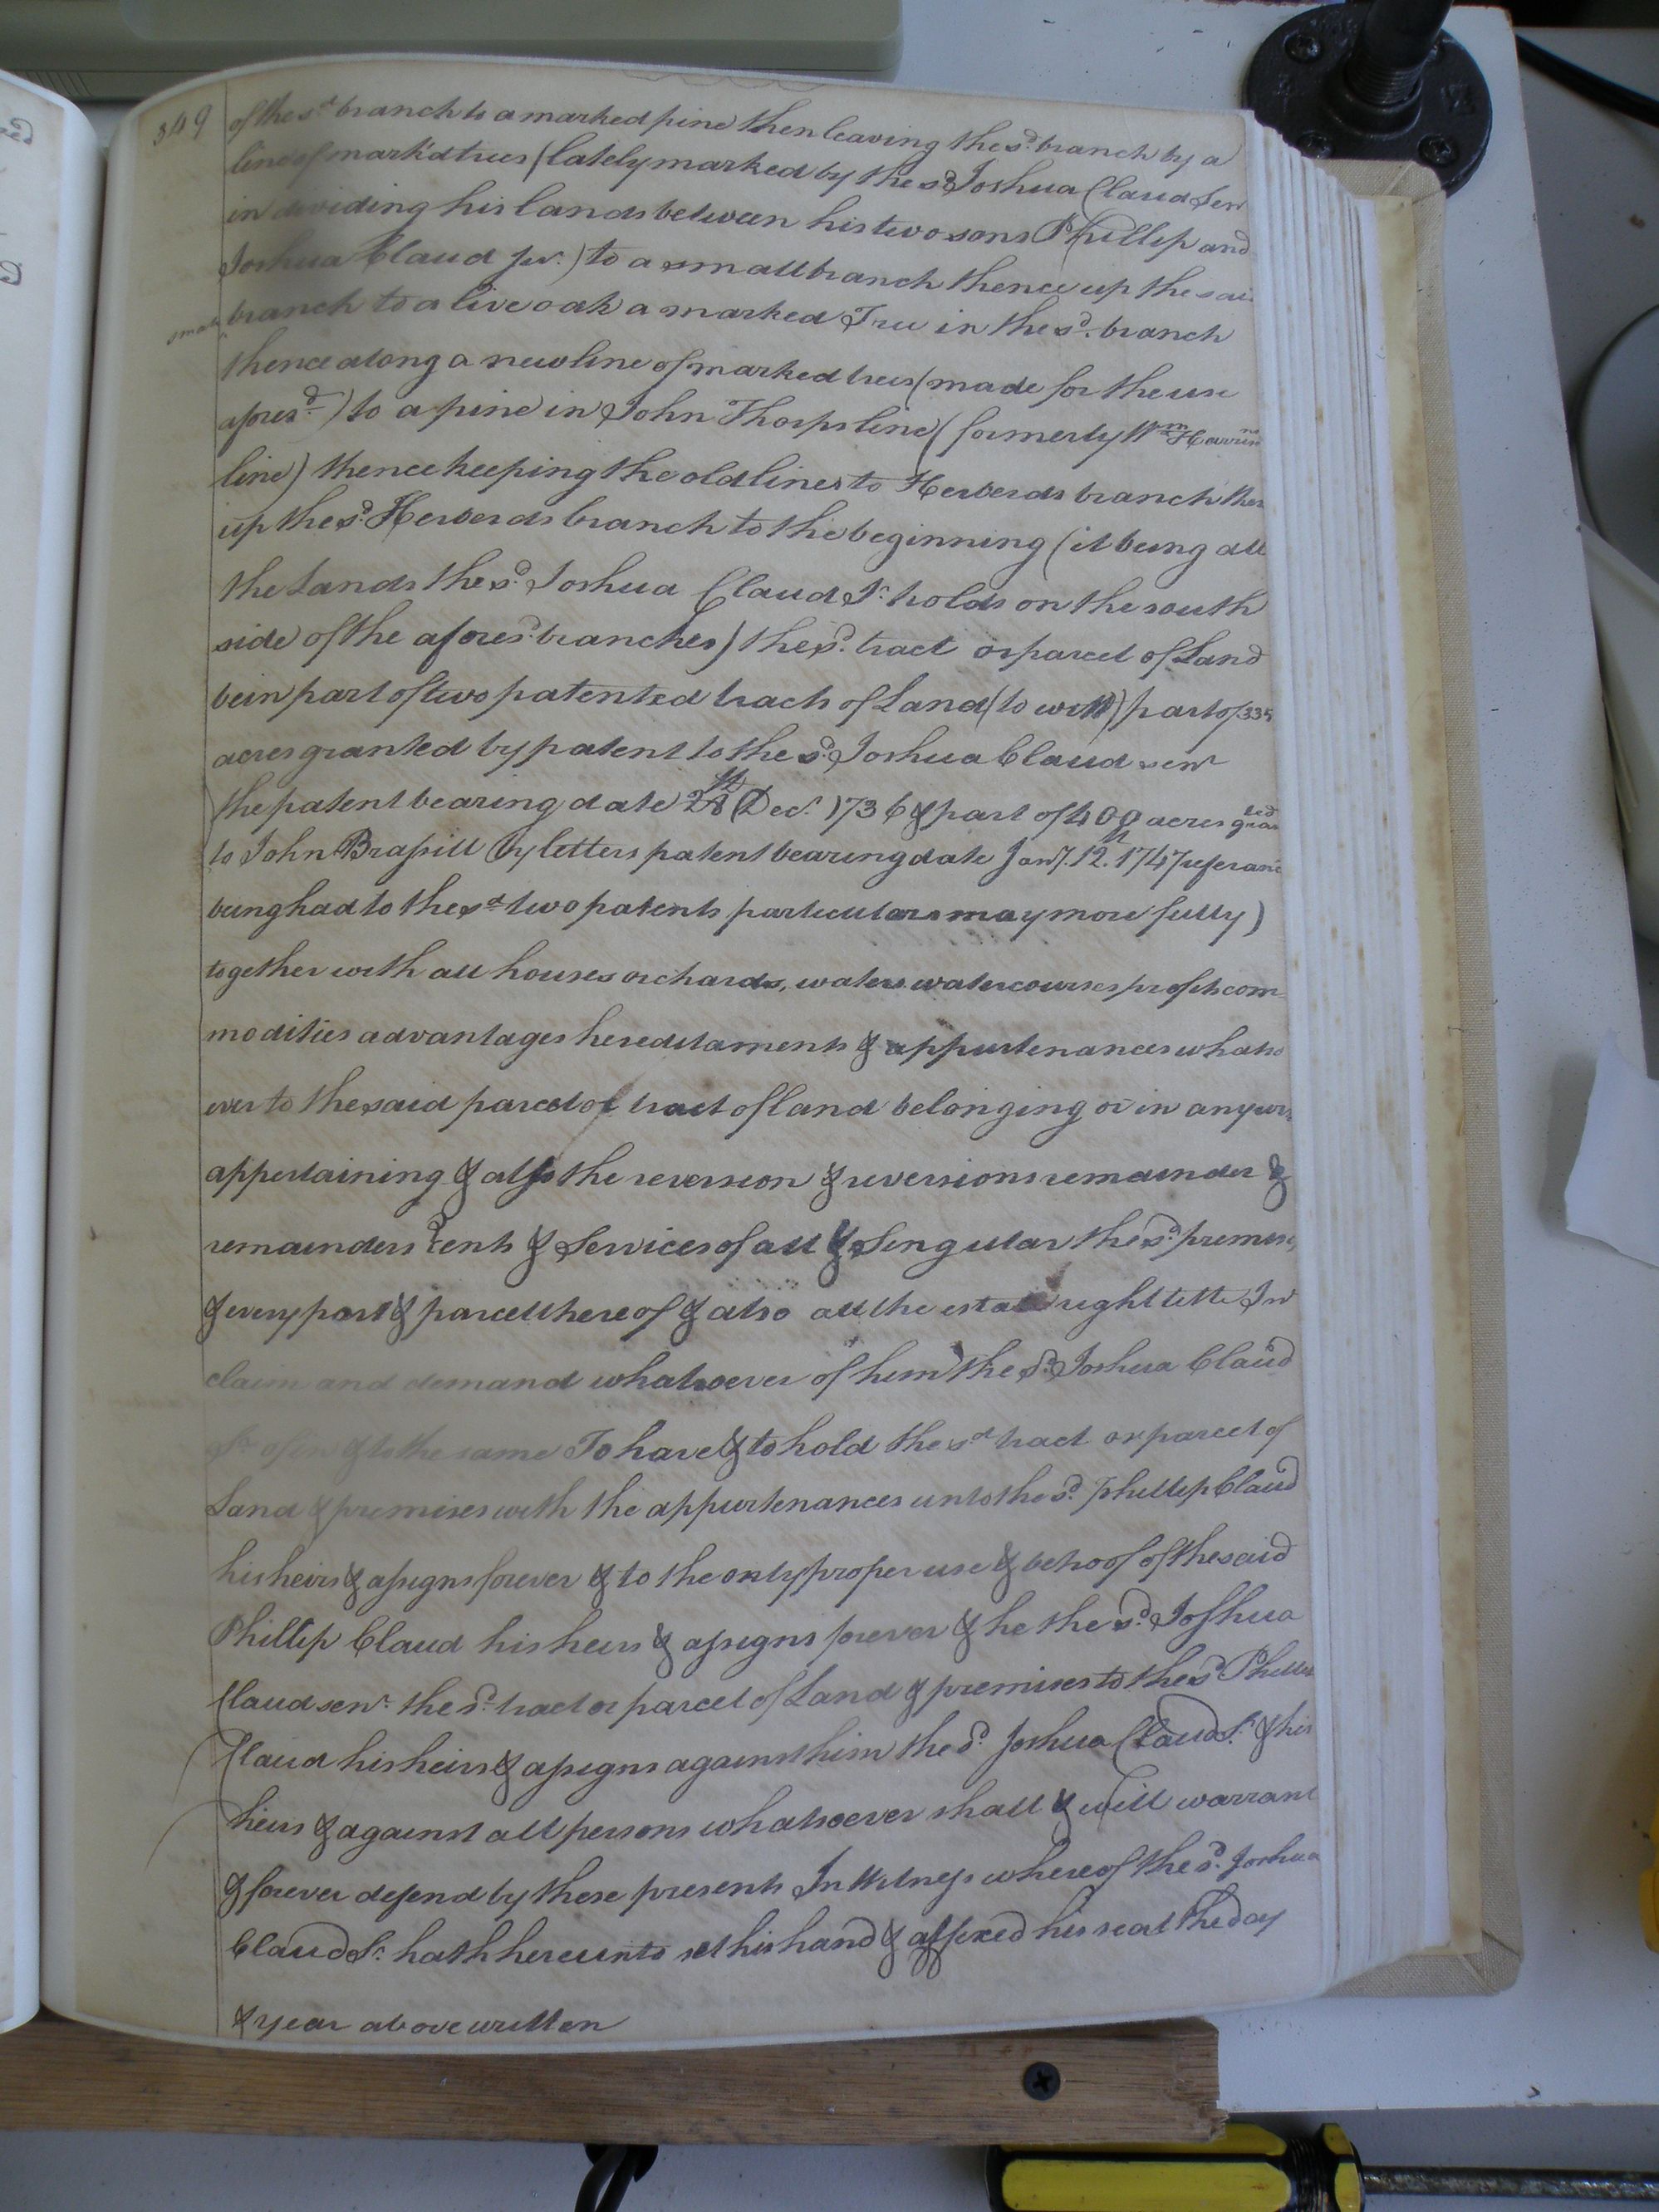 349
of the sd branch to a marked pine then leaving the sd. branch by a
line of mark'd trees (lately marked by the sd Joshua Claud Senr
in dividing his lands between his two sons Phillip and
Joshua Claud Jur.) to a small branch thence up the sai
small
branch to a live oak a marked Tree in the sd. branch
thence along a new line of marked trees (made for the use
aforesd.) to a pine in John Thorps line (formerly Wm
line) thence keeping the old lines to Herberds branch then
up the sd. Herberds branch to the beginning (it being all
the Lands the sd. Joshua Claud Sr. holds on the south
side of the aforesd. branches) the sd. tract or parcel of Land
bein part of two patented tracts of Land (to witt) part of 335
acres granted by patent to the sd. Joshua Claud senr
the patent bearing date 28th Decr. 1736 & part of 400 acres granted
to John Braſsill by letters patent bearing date Jany. 12th. 1747 referanc
being had to the sd two patents particulars may more fully)
together with all houses orchards, waters watercourses profits com-
modities advantages hereditaments & appurtenances whatso
ever to the said parcel or tract of land belonging or in any wis
appertaining & alſso the reversion & reversions remainder &
remainders rents & Services of all & Singular the sd. premises
& every part & parcel thereof & also all the estate right title In
claim and demand whatsoever of him the sd. Joshua Claud
Sr of in & to the same To have & to hold the sd tract or parcel of
Land & premises with the appurtenances unto the sd. Phillip Claud
his heirs & aſsigns forever & to the only proper use & behoof of the said
Phillip Claud his heirs & aſsigns forever & he the sd. Joſhua
Claud senr. the sd. tract or parcel of Land & premises to the sd. Phillip
Claud his heirs & aſsigns against him the sd. Joshua Claud Sr. & his
heirs & against all persons whatsoever shall & will warrant
& forever defend by these presents In Witneſs whereof the sd. Joshua
Claud Sr. hath hereunto set his hand & affixed his seal the day
& year above written